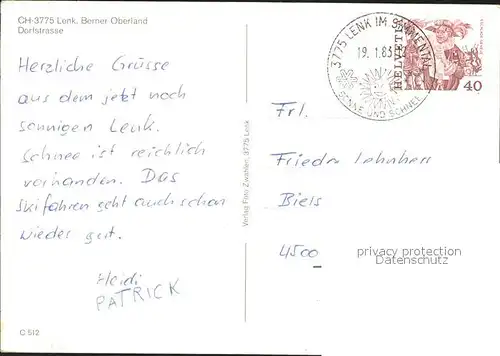 CH-3775 Lenk, Berner Oberland
Dorfstrasse
Herzliche Grüsse
aus dem jetzt noch
sonnigen Lenk.
Schnee ist reichlich
vorhanden. Das
Skifahren geht auch schon
wieder gut.
Heidi
PATRICK
C 512
Verlag Foto Zwahlen, 3775 Lenk
3775 LENK IM SIMMENTAL
19.1.83
SONNE UND SCHNEE
HELVETIA
40
Frl.
Frieda Lehnherr
Biels
4500
privacy protection
Datenschutz